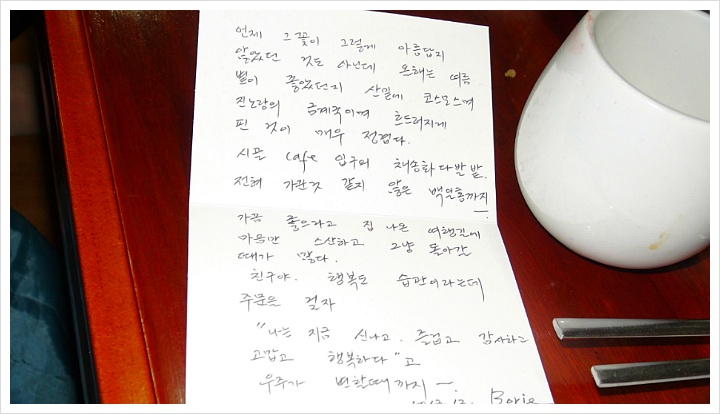 언제 그 꽃이 그렇게 아름답지
않았던 것도 아닌데 올해는 여름
볕이 좋았던지 산밑에 코스모스며
진노랑의 금계국이며 흐드러지게
핀 것이 매우 정겹다.
시골 cafe 입구의 채송화 다발 밭.
전혀 가관것 같지 않은 백일홍까지 —
가끔 좋으라고 집 나온 여행길에
마음만 스산하고 그냥 돌아갈
때가 많다.
친구야. 행복도 습관이라는데
주문을 걸자
"나는 지금 신나고. 즐겁고 감사하고
고맙고 행복하다" 고
우주가 변할때까지 —.
Borie